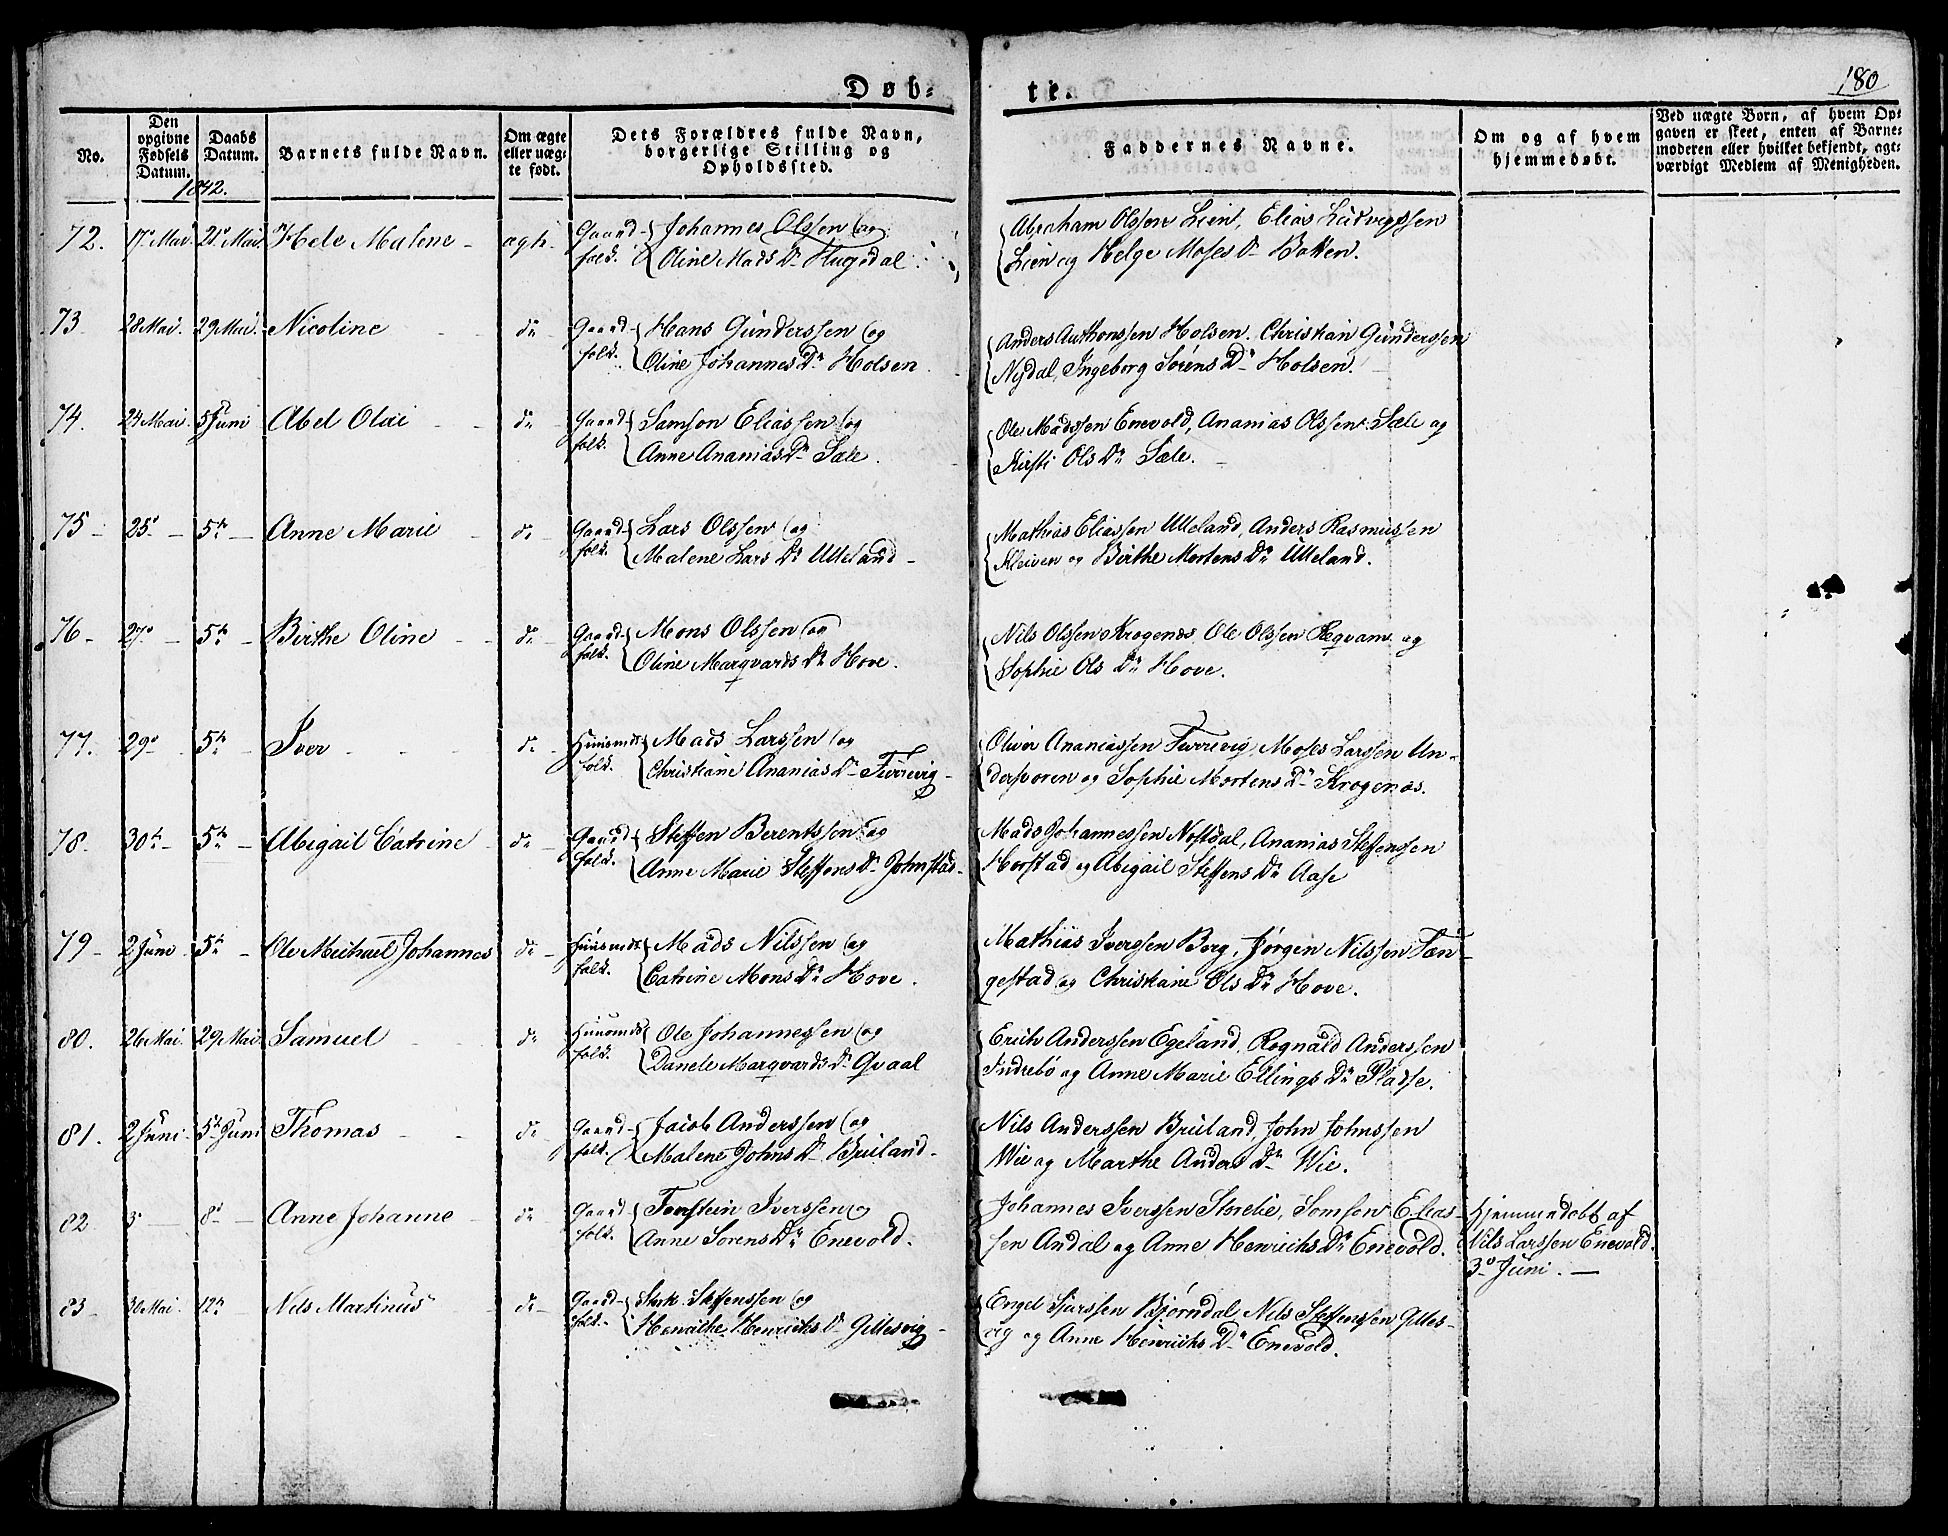 Døb-
te.
180
No.
Den opgivne Fødsels Datum.
Daabs Datum.
Barnets fulde Navn.
Om ægte eller uæg-te født.
Dets Forældres fulde Navn, borgerlige Stilling og Opholdssted.
Faddernes Navne.
Om og af hvem hjemmedøbt.
Ved uægte Børn, af hvem Op-gaven er skeet, enten af Barne-moderen eller hvilket bekjendt, agt-værdigt Medlem af Menigheden.
1842.
72. 17 Mai 21 Mai Hele Malene - ægte. Gaard- Johannes Olssen og
folk. Oline Mads Dr Hugedal.
Abraham Olssen Lien, Elias Ludvigssen
Lien og Helge Moses Dr Bakken.
73 28 Mai. 29 Mai. Nicoline do Gaard- Hans Gunderssen og
folk. Oline Johannes Dr Holsen.
Anders Anthonssen Holsen. Christian Gunderssen
Nydal, Ingeborg Sørens Dr Holsen.
74. 24 Mai. 5 Juni Abel Olai do Gaard Samson Eliassen og
folk. Anne Ananias Dr Sæle.
Ole Madssen Enevold, Ananias Olssen Sæle og
Kirsti Ols Dr Sæle.
75 25 - 5te - Anne Marie do - Gaard Lars Olssen og
folk. Malene Lars Dr Ulleland -
Mathias Eliassen Ulleland, Anders Rasmussen
Kleiven og Birthe Mortens Dr Ulleland.
76 - 27 - 5te - Birthe Oline do - Gaard Mons Olssen og
folk. Oline Marqvards Dr Hove.
Nils Olssen Krogenæs, Ole Olssen Ræqvam og
Sophie Ols Dr Hove.
77. 29 5te - Iver do - Huusmds Mads Larssen og
folk. Christiane Ananias Dr Furrevig -
Oliver Ananiassen Furrevig, Moses Larssen Un-
dersporen og Sophie Mortens Dr Krogenæs.
78. 30te - 5te - Abigail Catrine do - Gaard Steffen Berentssen og
folk. Anne Marie Steffens Dr Johnstad.
Mads Johannessen Nostdal, Ananias Steffenssen
Horstad og Abigail Steffens Dr Aase
79 - 2 Juni 5te - Ole Michael Johannes do - Huusmds Mads Nilssen og
folk. Catrine Mons Dr Hove.
Mathias Iverssen Berg, Jørgen Nilssen Tæn-
gestad og Christiane Ols Dr Hove.
80. 26 Mai. 29 Mai. Samuel do Huusmds Ole Johannessen og
folk. Danele Marqvards Dr Qvaal
Erich Anderssen Egeland, Regnald Anderssen
Indrebø og Anne Marie Ellings Dr Pladse.
81. 2 Juni. 5te Juni Thomas do - Gaard- Jacob Anderssen og
folk. Malene Johns Dr Bruland -
Nils Anderssen Bruland, John Johnssen
Wie og Marthe Anders Dr Wie.
82 3 - 8 - Anne Johanne do - Gaard Torstein Iverssen og
folk. Anne Sørens Dr Enevold.
Johannes Iverssen Storelie, Samson Elias-
sen Andal og Anne Henrichs Dr Enevold.
Hjemmedøbt af
Nils Larssen Enevold.
3 Juni. -
83 - 30 Mai. 12te Nils Martinus do - Gaard- Steffenssen og
folk. Henrichs Dr Gillesvig -
Engel Sjurssen Bjørndal, Nils Steffenssen Gilles-
vig og Anne Henrichs Dr Enevold.